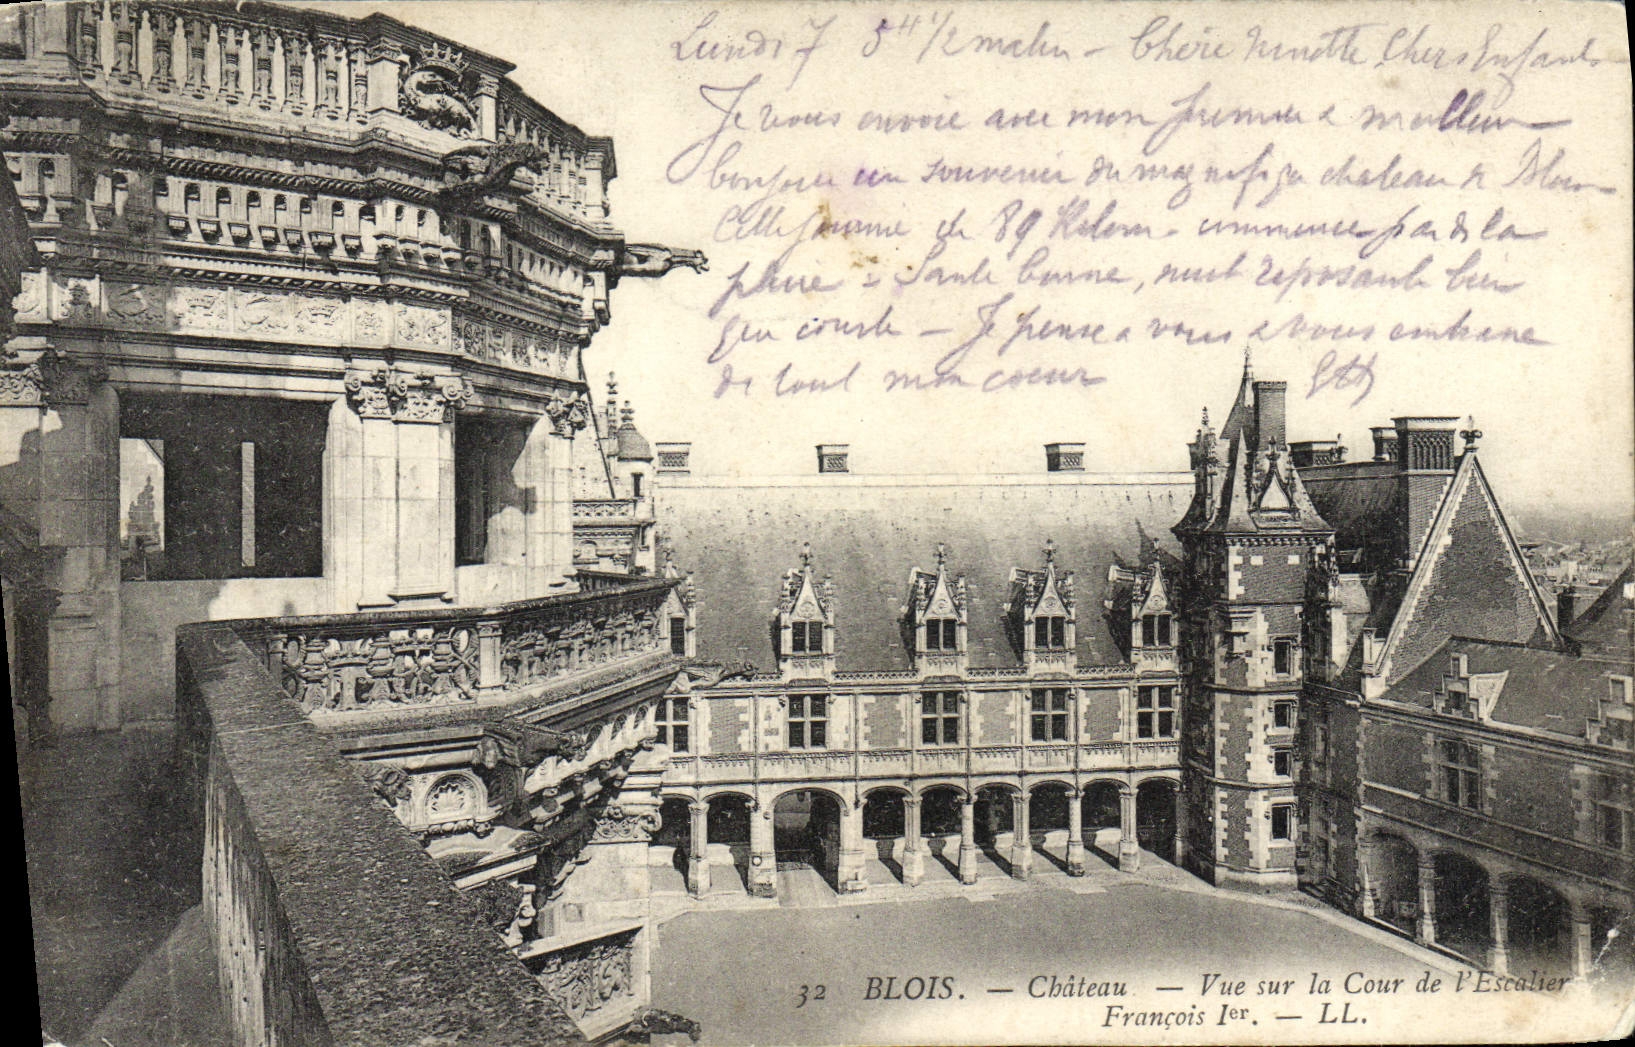 Lundi 7 5H 1/2 matin - Chère Ninette Chers Enfants
Je vous envoie avec mon premier & meilleur
bonjour un souvenir du magnifiqu chateau de Blois
Cette journée de 89 Kilom. commence par de la
pluie - Santé bonne, nuit reposante bien
que courte - Je pense a vous & vous embrasse
de tout mon coeur
32 BLOIS. — Château — Vue sur la Cour de l'Escalier
François Ier. — LL.